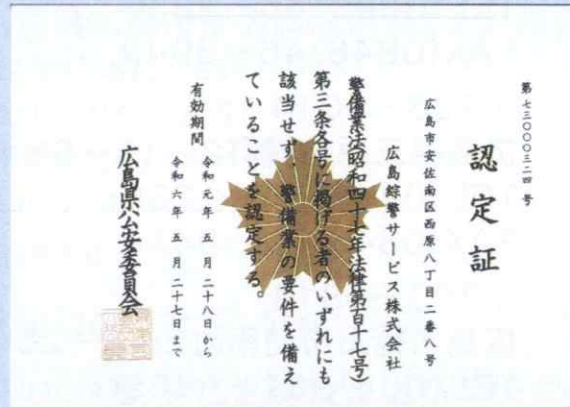 第七三〇〇〇三二四号
認定証
広島市安佐南区西原八丁目二番八号
広島綜警サービス株式会社
警備業法(昭和四十七年法律第百十七号)
第三条各号に掲げる者のいずれにも
該当せず、警備業の要件を備え
ていることを認定する。
有効期間
令和元年五月二十八日から
令和六年五月二十七日まで
広島県公安委員会